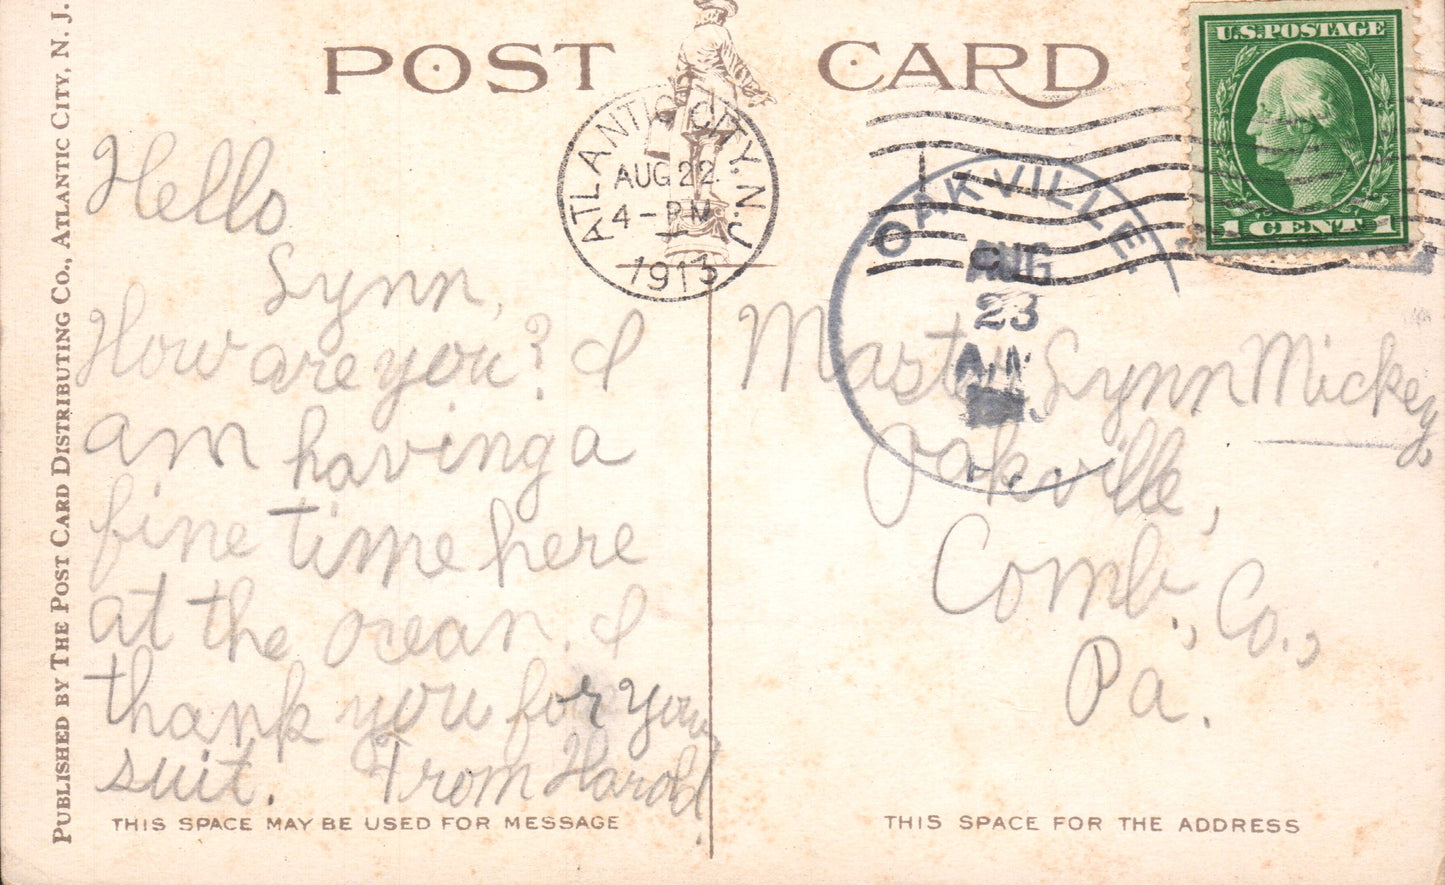 PUBLISHED BY THE POST CARD DISTRIBUTING CO., ATLANTIC CITY, N. J.
POST CARD
U.S.POSTAGE
1 CENT 1
ATLANTIC CITY, N.J.
AUG 22
4-PM
1913
OAKVILLE
AUG
23
Hello
Lynn,
How are you? I
am having a
fine time here
at the ocean. I
thank you for your
suit. From Harold
Master Lynn Mickey,
Oakville,
Comb., Co.,
Pa.
THIS SPACE MAY BE USED FOR MESSAGE
THIS SPACE FOR THE ADDRESS